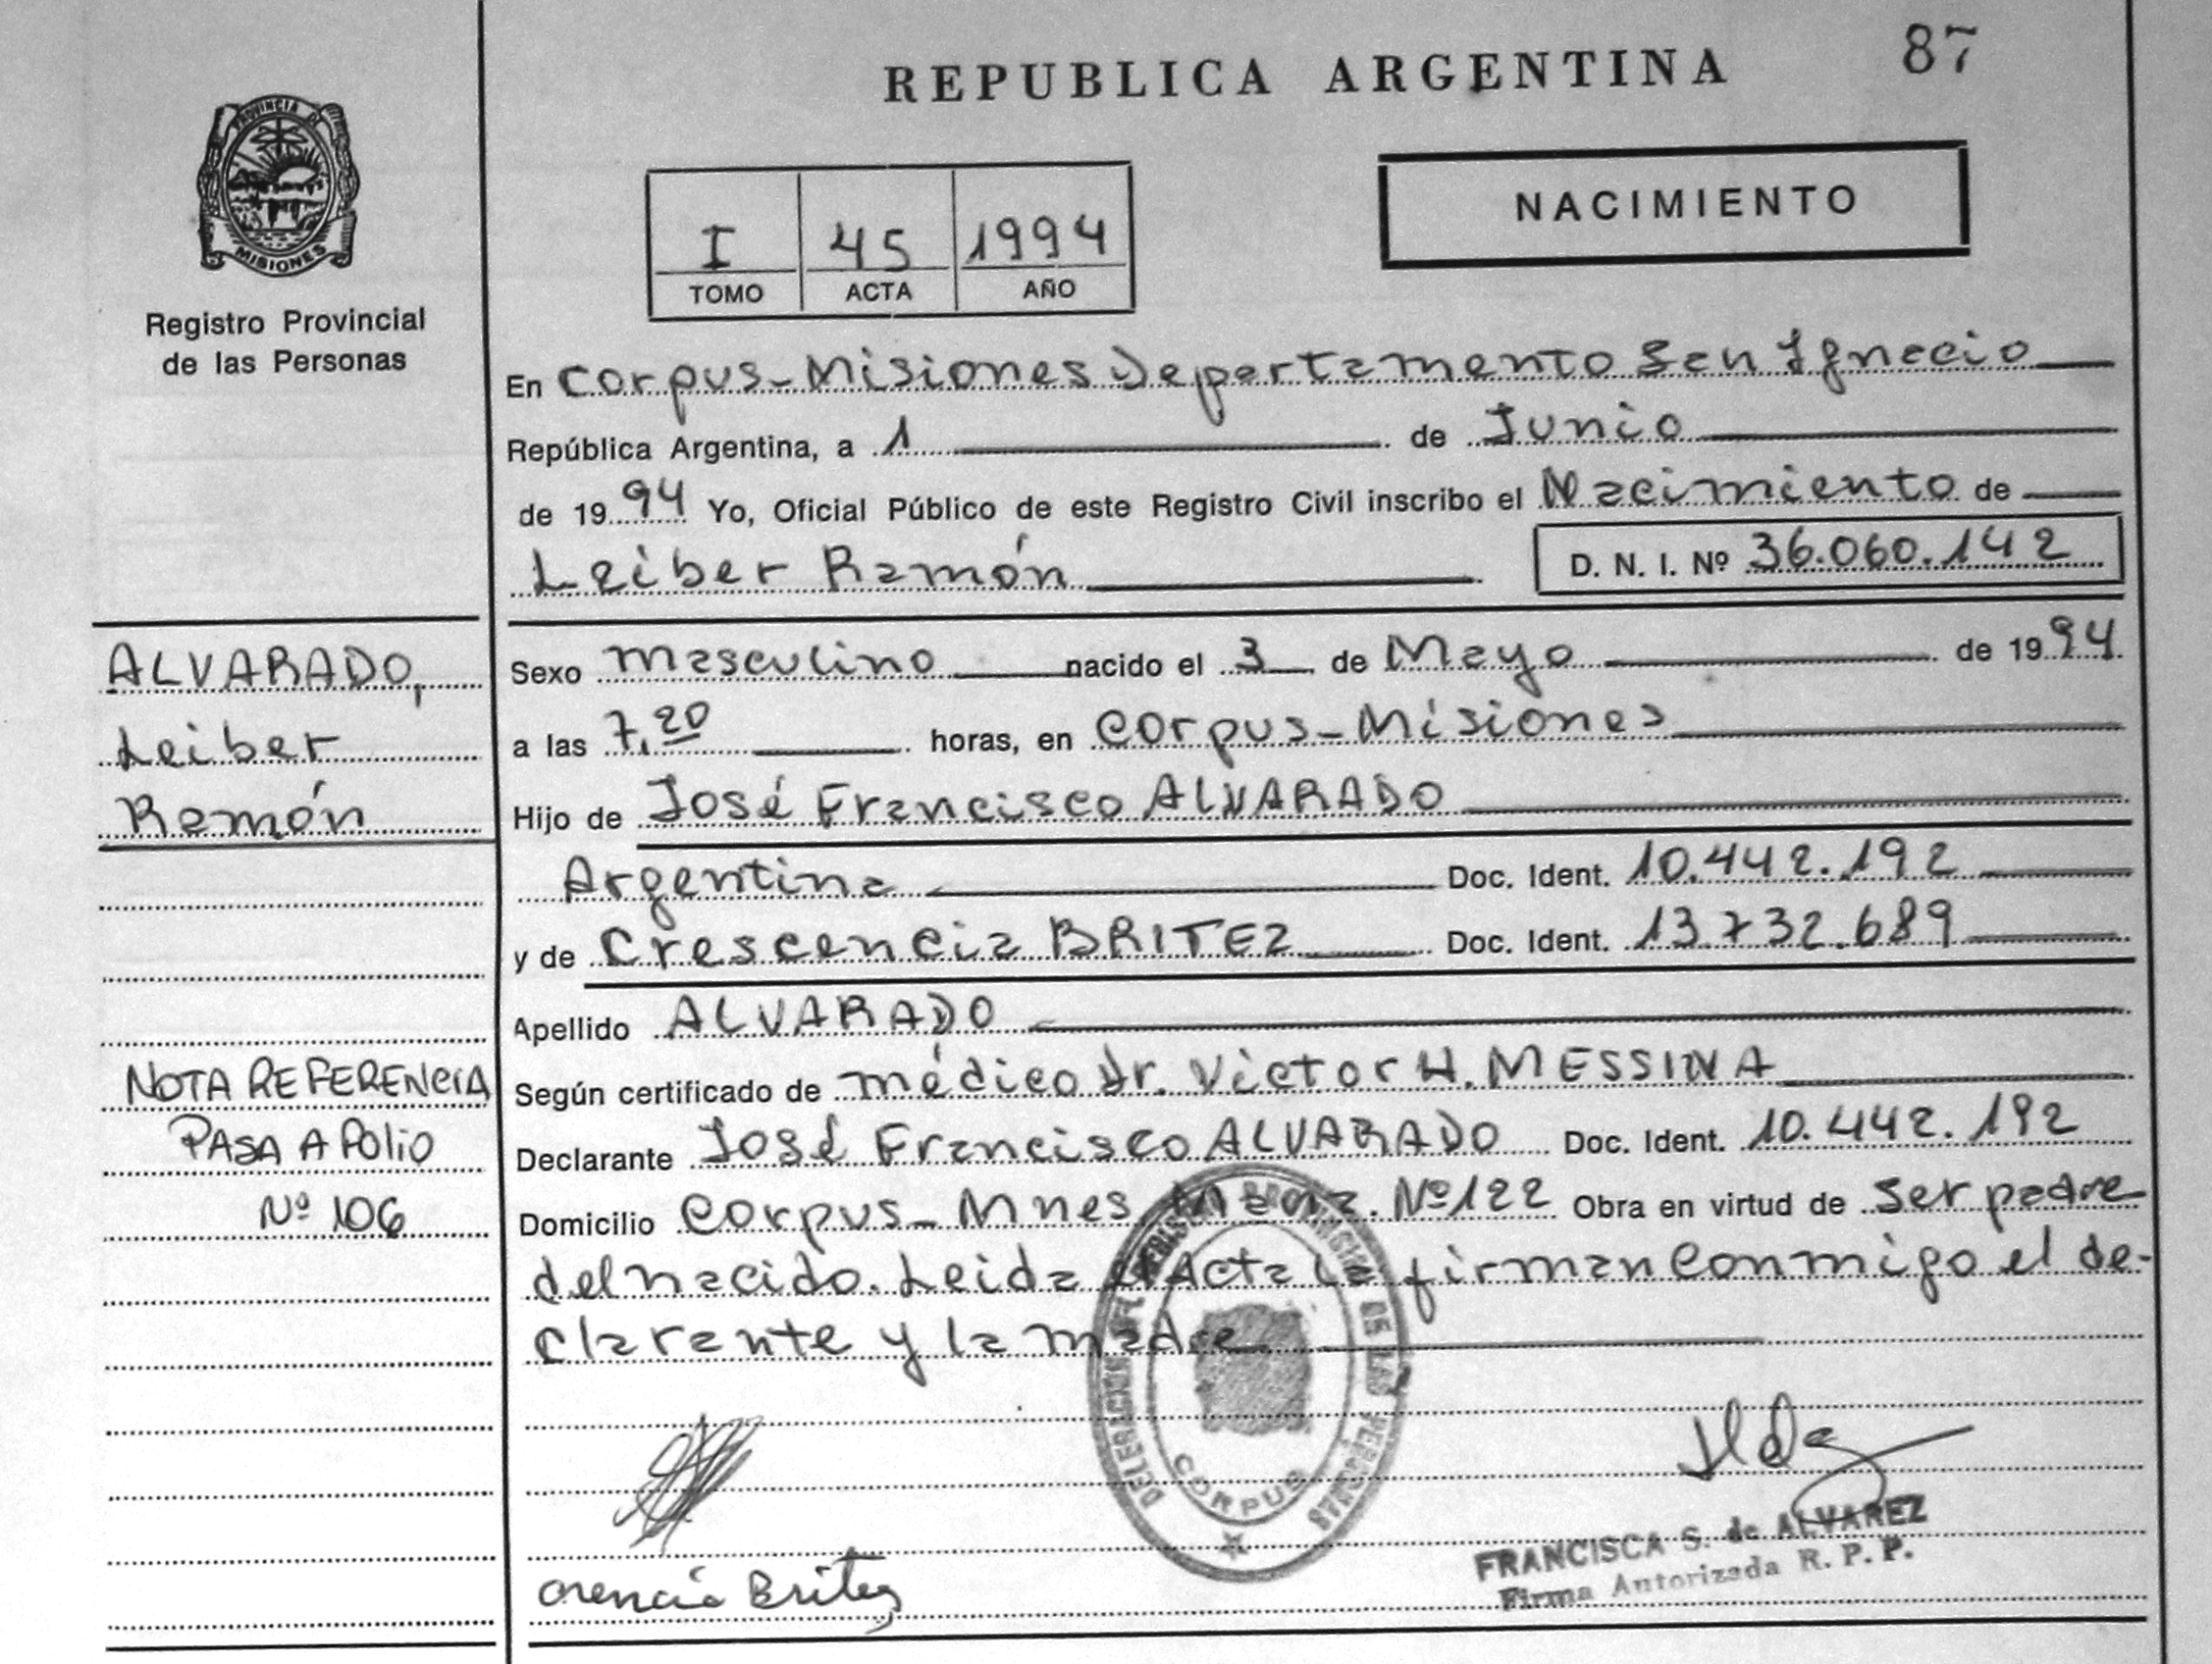 87
REPUBLICA ARGENTINA
PROVINCIA DE
MISIONES
Registro Provincial
de las Personas
NACIMIENTO
I 45 1994
TOMO ACTA AÑO
En Corpus-Misiones Departamento San Ignacio
República Argentina, a 1 de Junio
de 1994 Yo, Oficial Público de este Registro Civil inscribo el Nacimiento de
Leiber Ramón D. N. I. Nº 36.060.142
ALVARADO,
Leiber
Ramón
Sexo masculino nacido el 3 de Mayo de 1994
a las 7,20 horas, en Corpus-Misiones
Hijo de José Francisco ALVARADO
Argentina Doc. Ident. 10.442.192
y de Crescencia BRITEZ Doc. Ident. 13.732.689
Apellido ALVARADO
NOTA REFERENCIA
PASA A FOLIO
Nº 106
Según certificado de médico Dr. Victor H. MESSINA
Declarante José Francisco ALVARADO Doc. Ident. 10.442.192
Domicilio Corpus-Mnes Manz. Nº 122 Obra en virtud de ser padre
del nacido. Leida el Acta la firman conmigo el de-
clarante y la madre
DELEGACION DEL REGISTRO PROVINCIAL DE LAS PERSONAS
CORPUS
Britez
FRANCISCA S. de ALVAREZ
Firma Autorizada R. P. P.